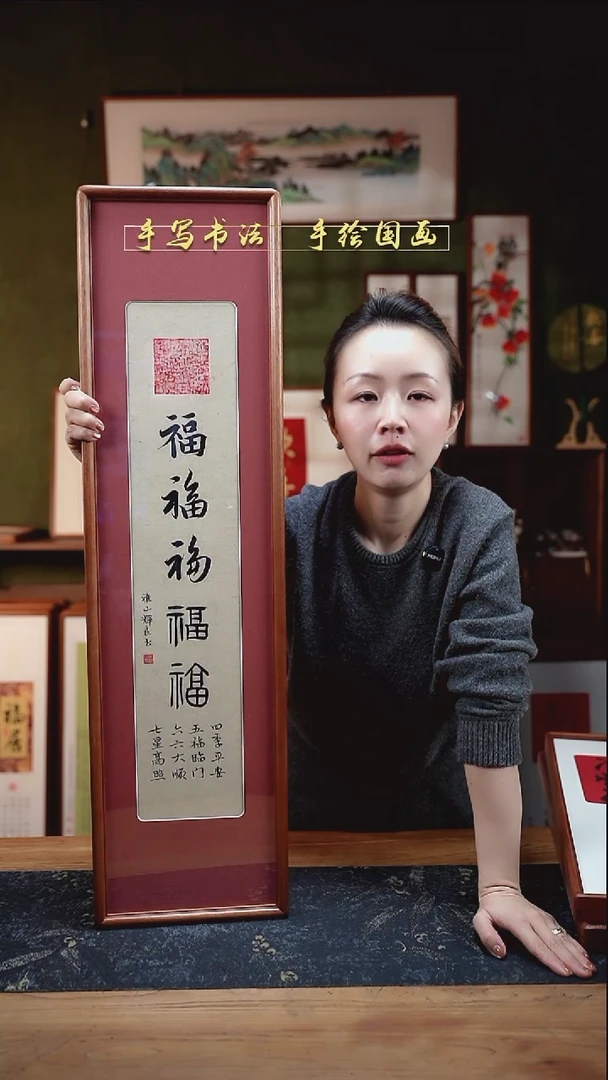 手写书法 手绘国画
福
福
福
福
福
四季平安
五福临门
六六大顺
七星高照